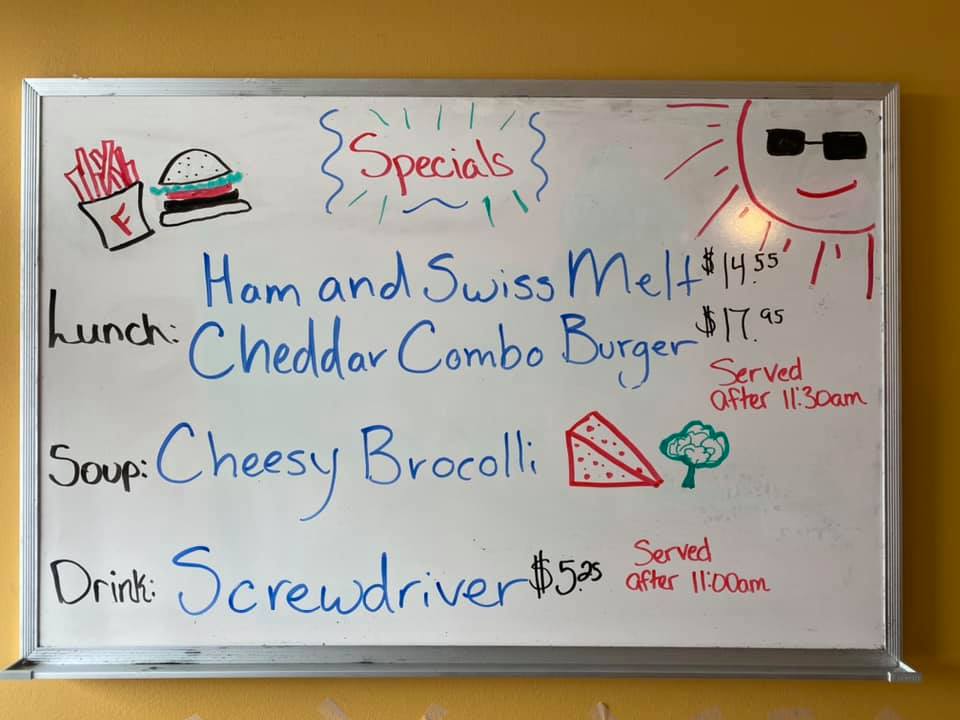 Specials
F
Ham and Swiss Melt $14.55
Lunch:
Cheddar Combo Burger $17.95
Served
after 11:30am
Soup: Cheesy Brocolli
Drink: Screwdriver $5.25
Served
after 11:00am